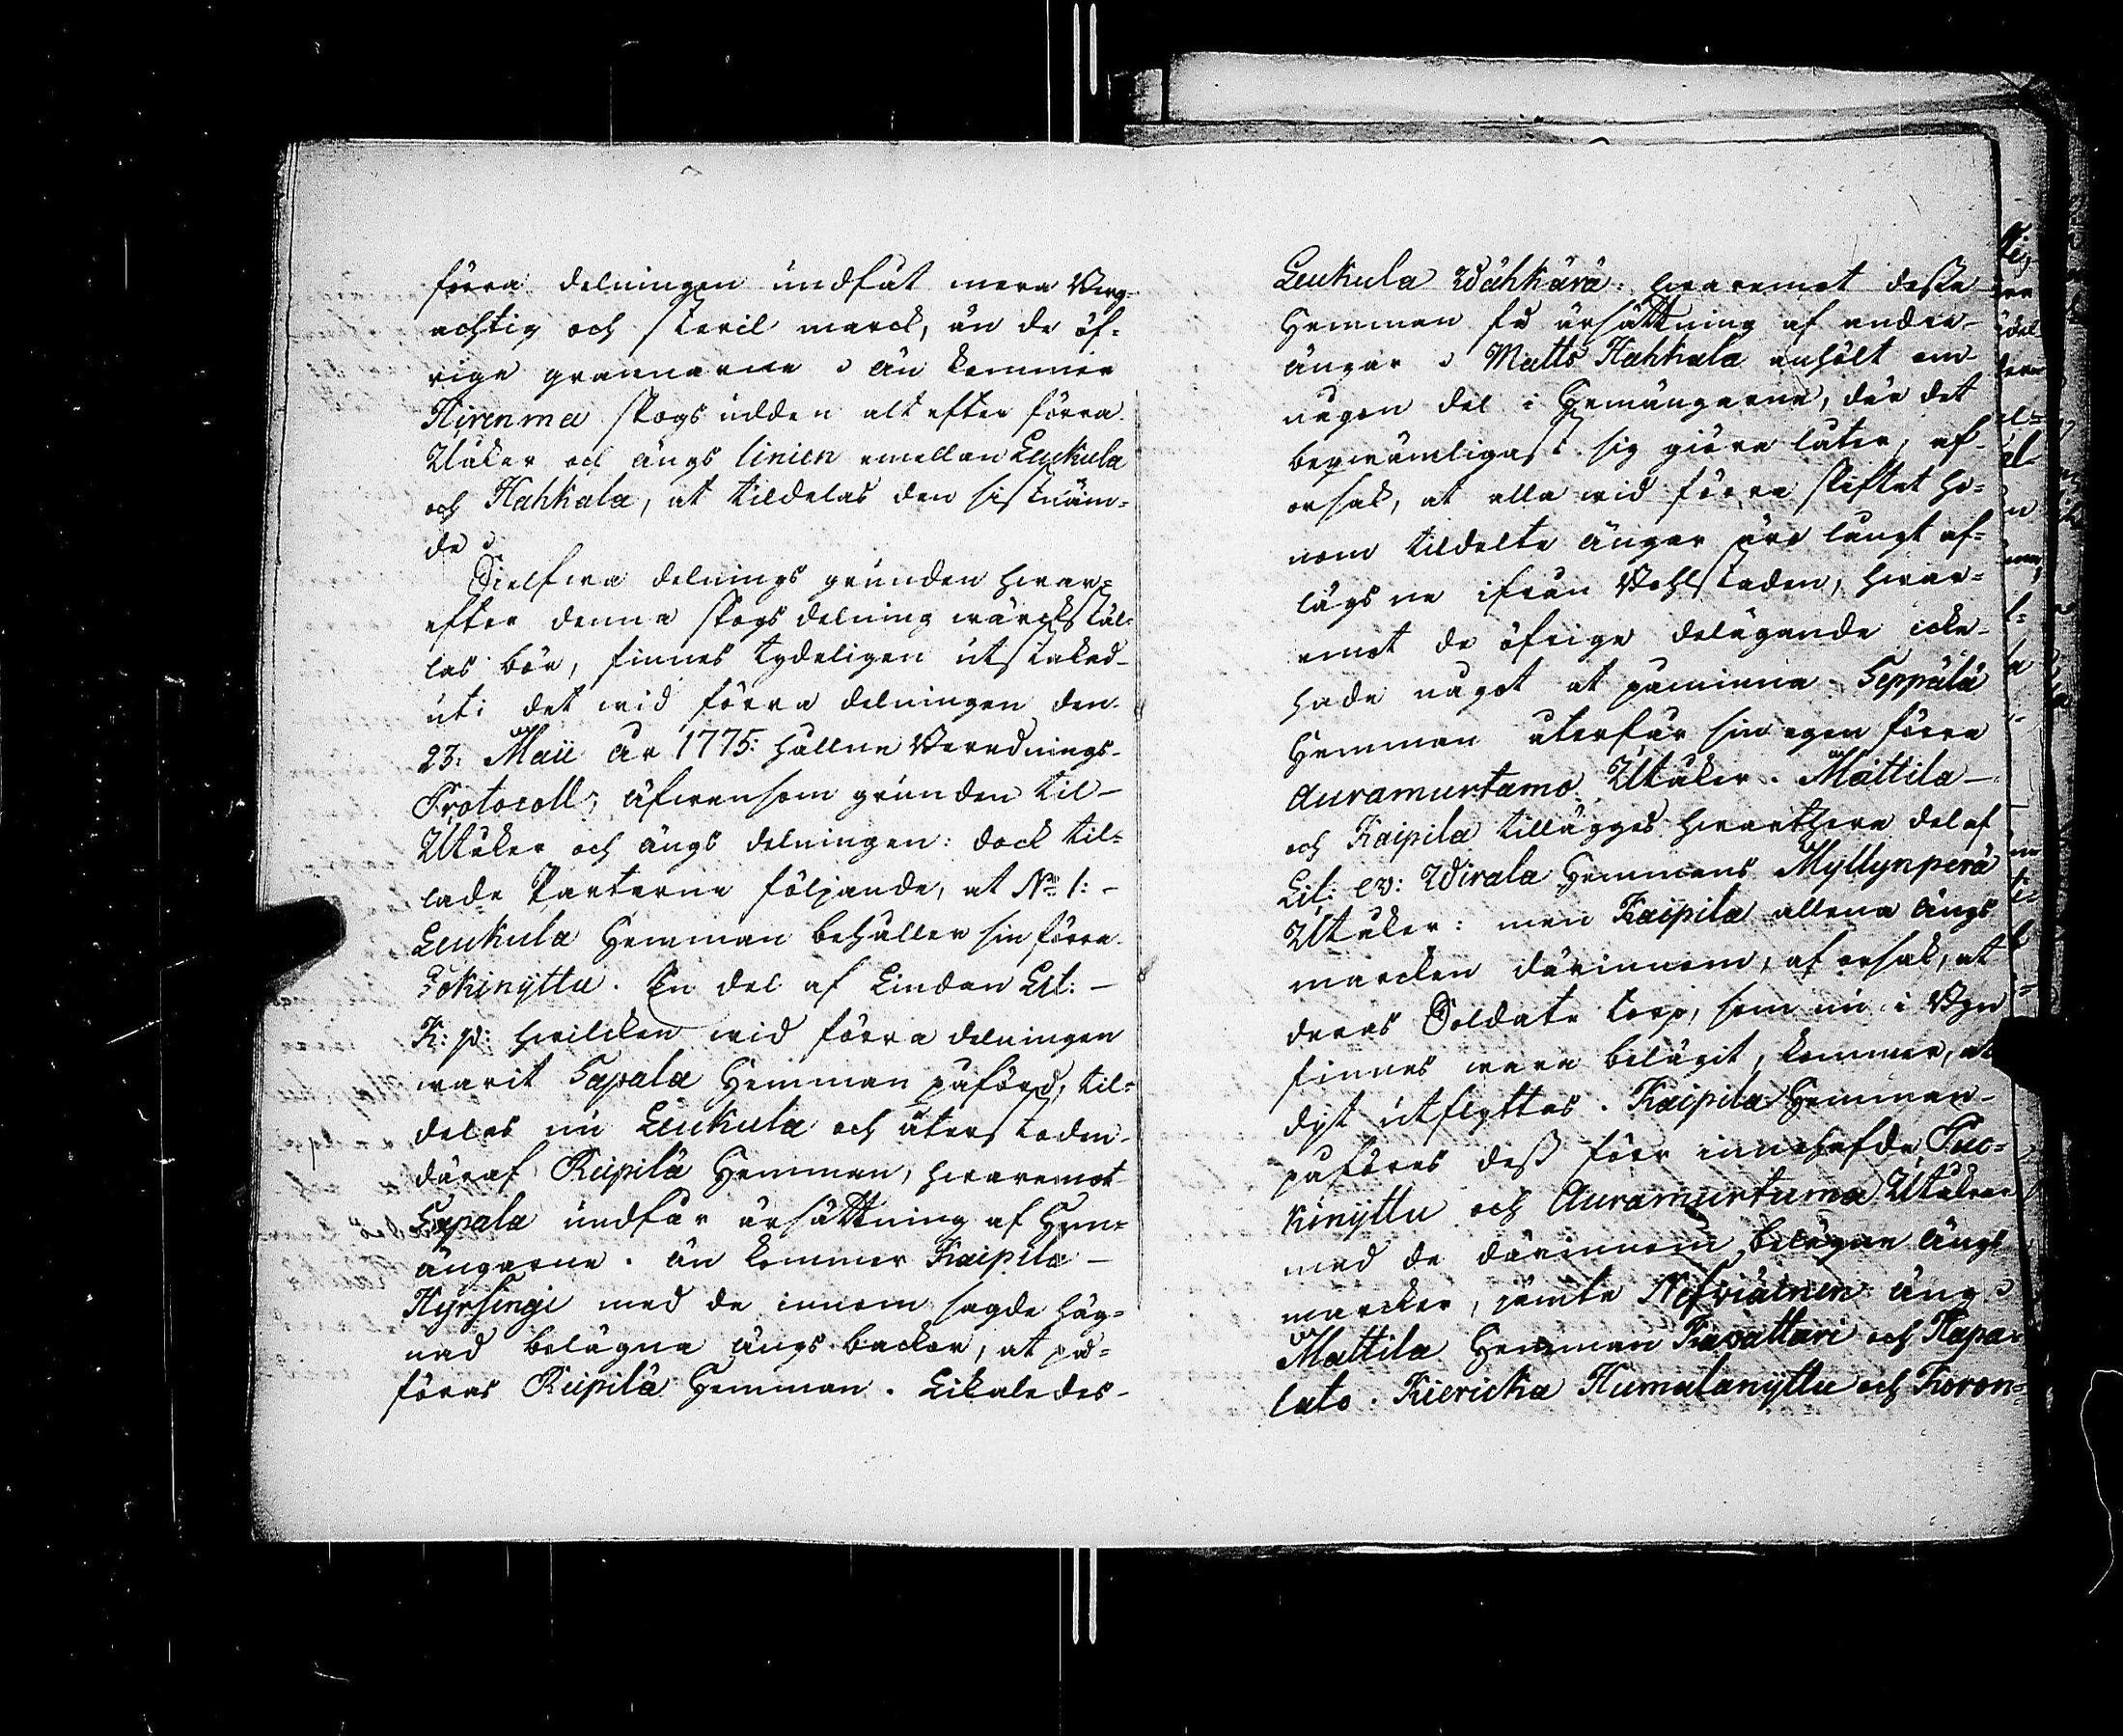 förra delningen undfåt mera Berg-
achtig och steril marck, än de öf-
rige grannarne. än kommer
Hirenma skogs udden alt efter förra
Utåker och ängs linien emellan Leukula
och Hahkala, at tildelas den sistnäm-
de.
Sielfwa delnings grunden hwar-
efter denna skogs delning wärckstäl-
las bör, finnes tydeligen utstakad
uti det wid förra delningen den
23: Maii år 1775: hållne Berednings-
Protocoll; äfwensom grunden til
Utåker och ängs delningen: dock til-
lade Parterne följande, at No 1:
Leukula Hemman behåller sin förra
Jokinyttu. En del af Lindan Lit:
K: p: hwilcken wid förra delningen
warit Sapala Hemman påförd, til-
delas nu Leukula och återstoden
däraf Reipilä Hemman, hwaremot
Sapala undfår ersättning af Hem-
ängarne. än kommer Kaipila
Hyrsingi med de innom sagde häg-
nad belägna ängs backar, at på-
föras Reipilä Hemman. Likaledes
Leukula Wähkärä: hwaremot desse
Hemman få ersättning af andra
ängar. Matts Hahkala anhölt om
någon del i Hemängarne, där det
beqwämligast sig giöra låter, af
orsak, at alla wid förra skiftet ho-
nom tildelte ängar äro långt af-
lägsne ifrån Bohlstaden, hwar-
emot de öfrige delägande icke
hade något at påminna. Seppälä
Hemman återfår sin egen förra
Auramurtamo Utåker. Mattila
och Kaipila tillägges hwarthera del af
Lit: ev: Wirala Hemmans Myllynperä
Utåker: men Kaipila allena ängs
marcken därinnom, af orsak, at
deras Soldate torp, som nu i Byn
finnes wara belägit, kommer, at
dyt utflyttas. Kaipila Hemman
påföres dess förr innehafde Tuo-
kinyttu och Auramurtama Utåkrar
med de därinnom belägne ängs
marcker, jämte äng.
Mattila Hemman Kasattari och Hapa-
lato. Kiericka Humalanyttu och Koron-